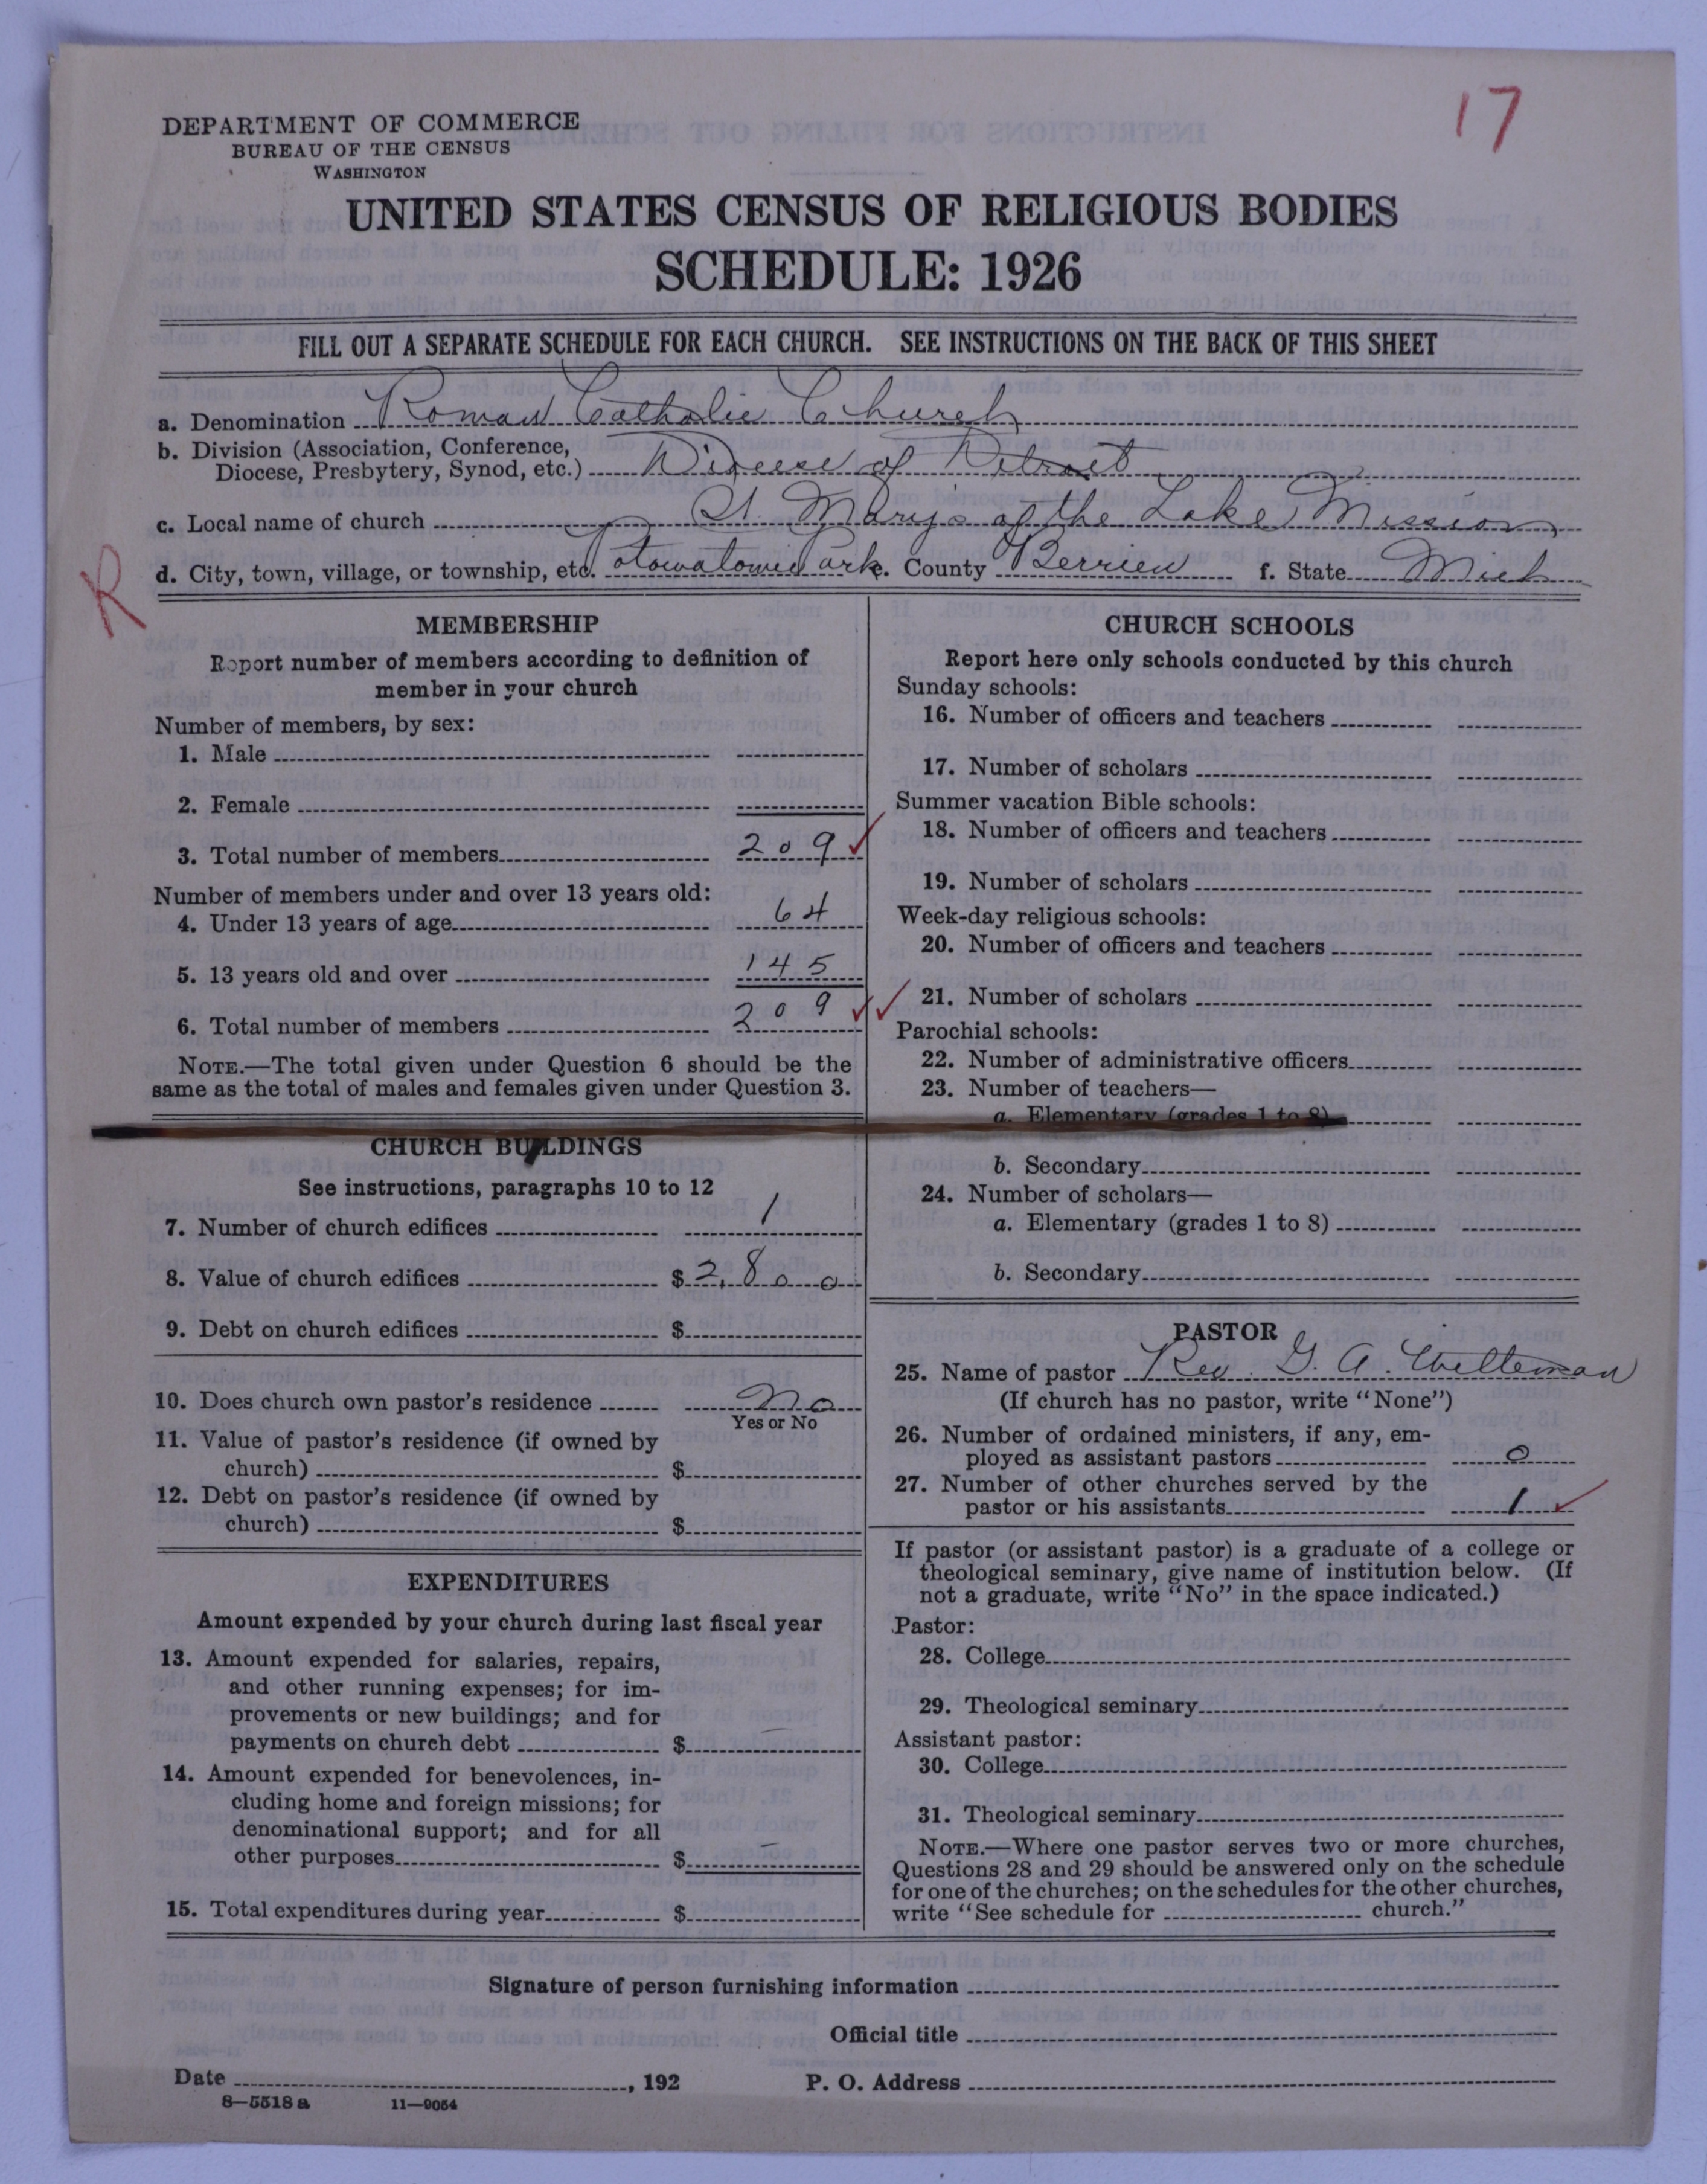 17
DEPARTMENT OF COMMERCE
BUREAU OF THE CENSUS
WASHINGTON
UNITED STATES CENSUS OF RELIGIOUS BODIES
SCHEDULE: 1926
FILL OUT A SEPARATE SCHEDULE FOR EACH CHURCH. SEE INSTRUCTIONS ON THE BACK OF THIS SHEET
a. Denomination Roman Catholic Church
b. Division (Association, Conference,
Diocese, Presbytery, Synod, etc.) Diocese of Detroit
c. Local name of church St. Mary's of the Lake Mission
d. City, town, village, or township, etc. Park e. County Berrien f. State Mich
R
MEMBERSHIP
Report number of members according to definition of
member in your church
Number of members, by sex:
1. Male
2. Female
3. Total number of members 209
Number of members under and over 13 years old:
4. Under 13 years of age 64
5. 13 years old and over 145
6. Total number of members 209
NOTE.—The total given under Question 6 should be the
same as the total of males and females given under Question 3.
CHURCH BUILDINGS
See instructions, paragraphs 10 to 12
7. Number of church edifices 1
8. Value of church edifices $ 2,800
9. Debt on church edifices $
10. Does church own pastor's residence No
Yes or No
11. Value of pastor's residence (if owned by
church) $
12. Debt on pastor's residence (if owned by
church) $
EXPENDITURES
Amount expended by your church during last fiscal year
13. Amount expended for salaries, repairs,
and other running expenses; for im-
provements or new buildings; and for
payments on church debt $ —
14. Amount expended for benevolences, in-
cluding home and foreign missions; for
denominational support; and for all
other purposes $ —
15. Total expenditures during year $
CHURCH SCHOOLS
Report here only schools conducted by this church
Sunday schools:
16. Number of officers and teachers
17. Number of scholars
Summer vacation Bible schools:
18. Number of officers and teachers
19. Number of scholars
Week-day religious schools:
20. Number of officers and teachers
21. Number of scholars
Parochial schools:
22. Number of administrative officers
23. Number of teachers—
a. Elementary (grades 1 to 8)
b. Secondary
24. Number of scholars—
a. Elementary (grades 1 to 8)
b. Secondary
PASTOR
25. Name of pastor Rev. G. A.
(If church has no pastor, write "None")
26. Number of ordained ministers, if any, em-
ployed as assistant pastors 0
27. Number of other churches served by the
pastor or his assistants 1
If pastor (or assistant pastor) is a graduate of a college or
theological seminary, give name of institution below. (If
not a graduate, write "No" in the space indicated.)
Pastor:
28. College
29. Theological seminary
Assistant pastor:
30. College
31. Theological seminary
NOTE.—Where one pastor serves two or more churches,
Questions 28 and 29 should be answered only on the schedule
for one of the churches; on the schedules for the other churches,
write "See schedule for church."
Signature of person furnishing information
Official title
Date , 192 P. O. Address
8—5518 a 11—9054